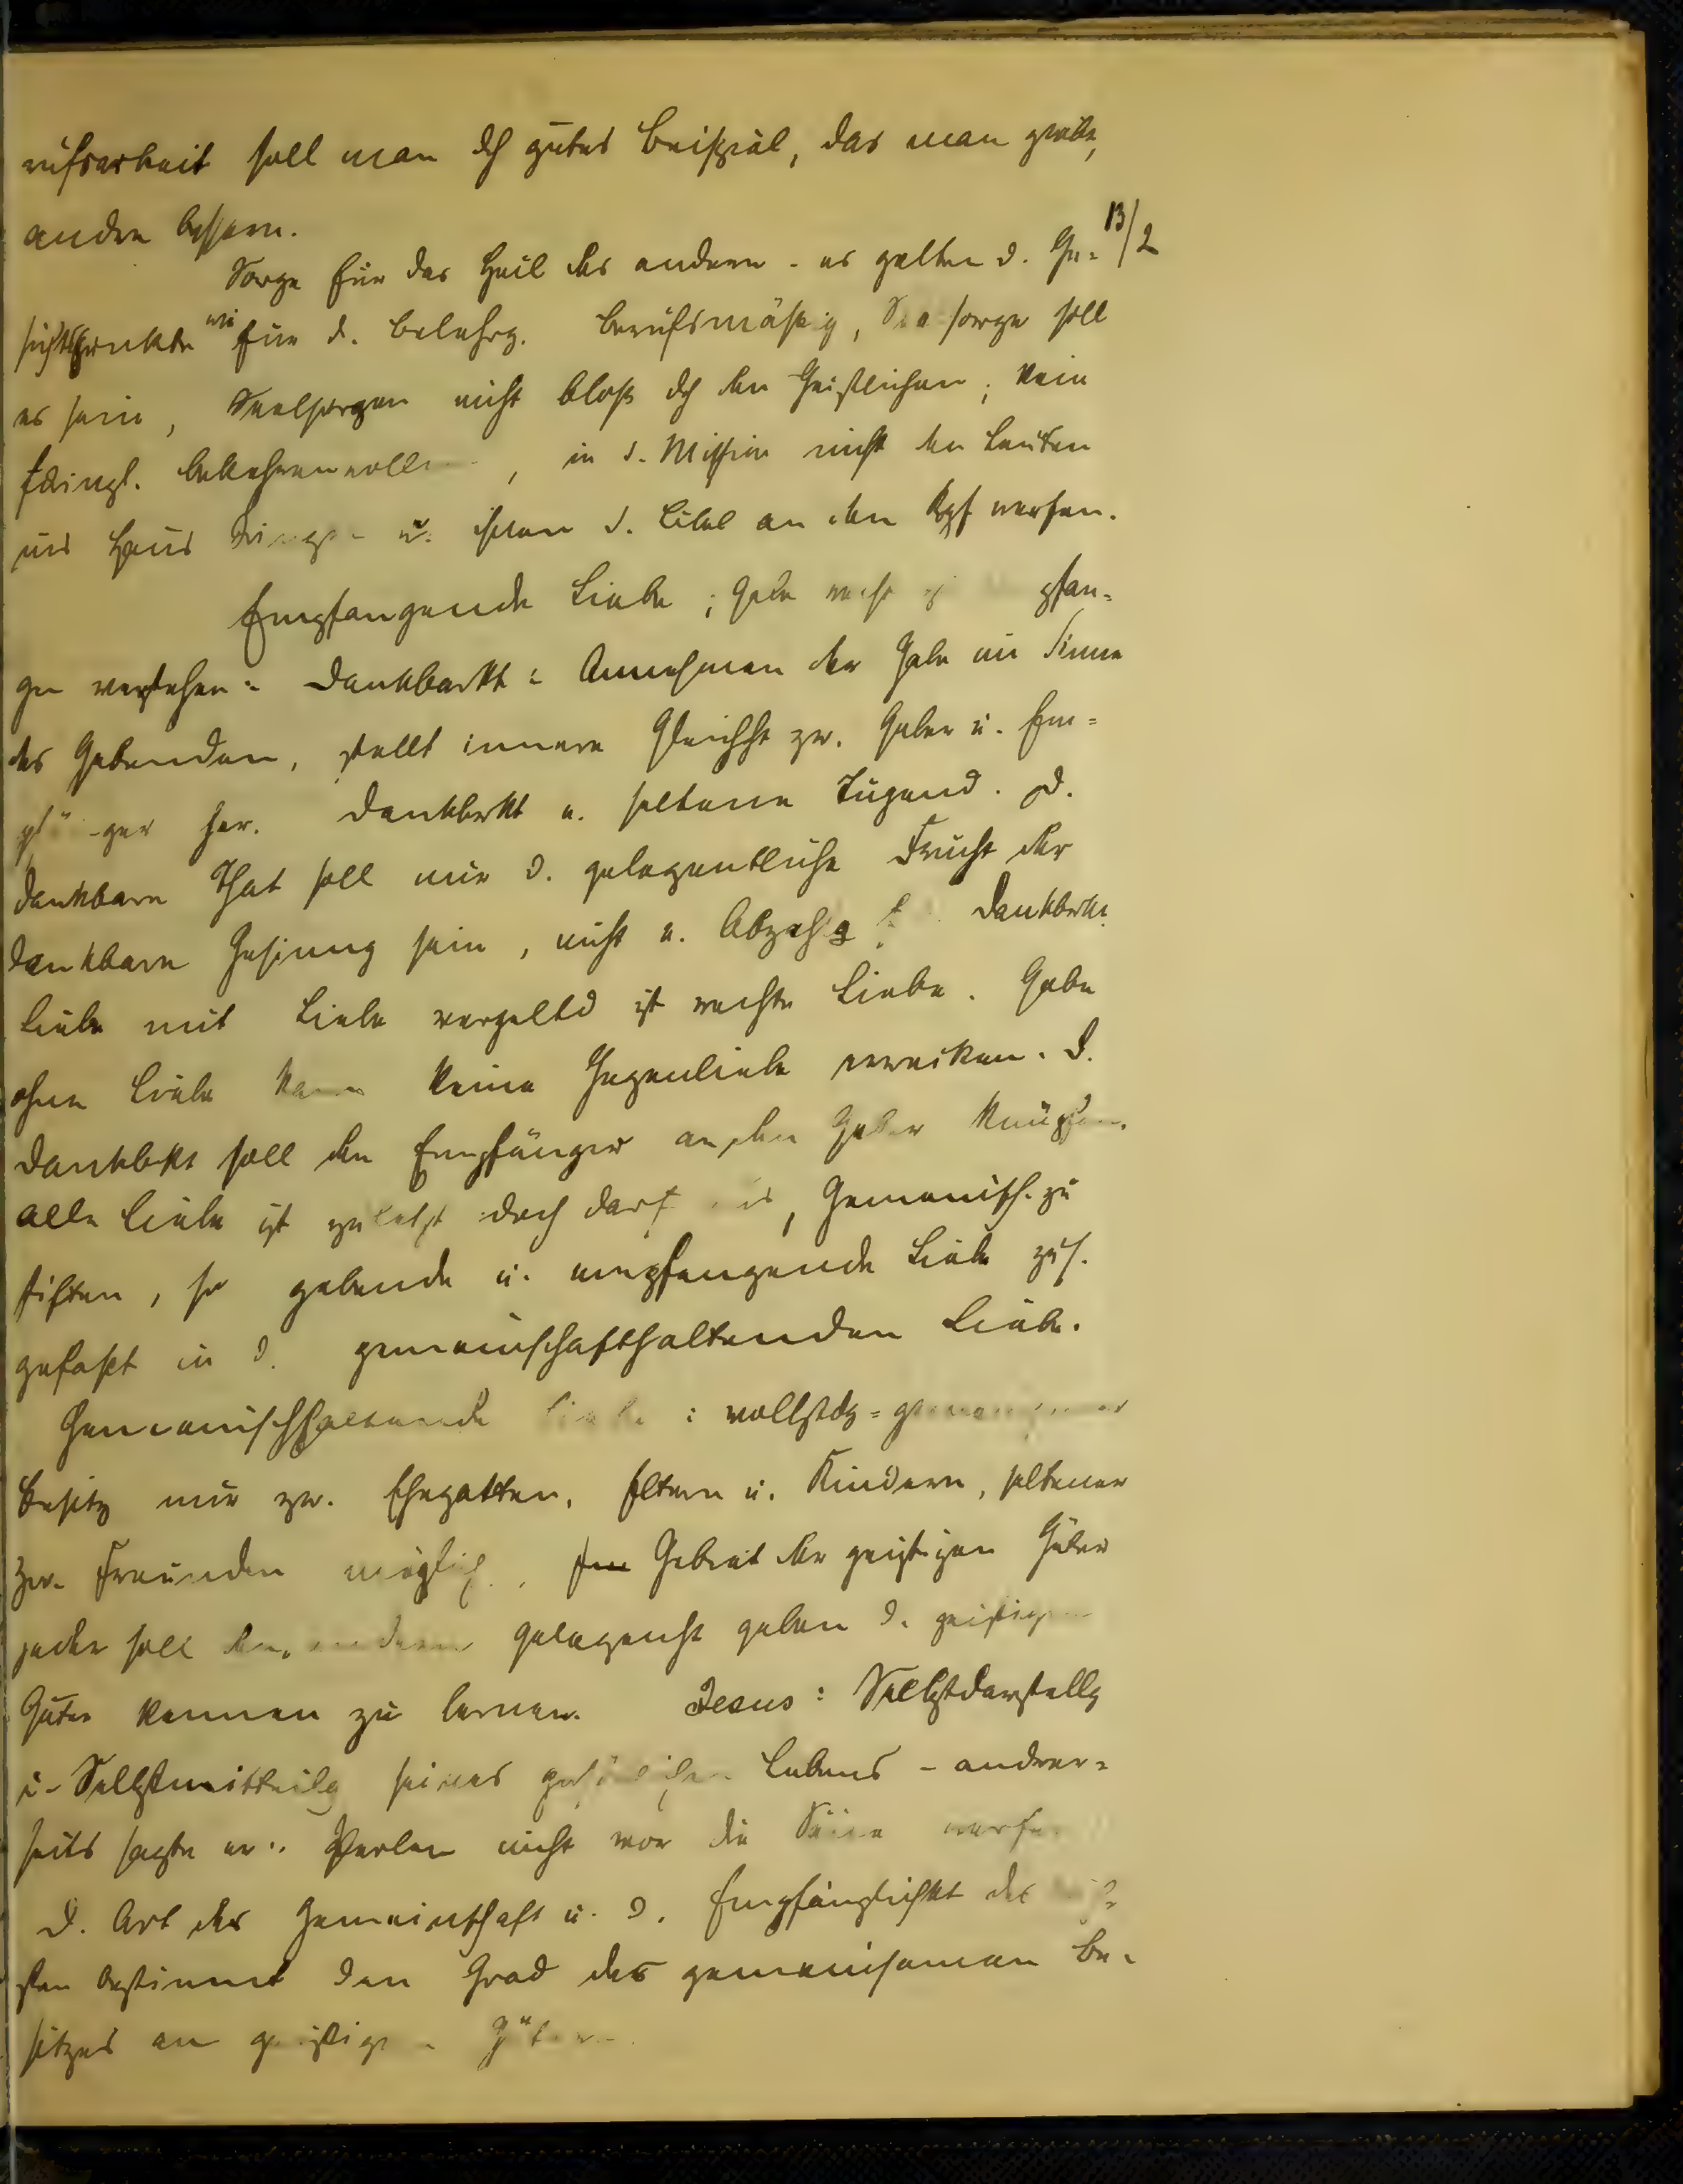 rufsarbeit soll man dch gutes Beispiel, das man giebt,
andre bessern.
13/2
Sorge für das Heil des andern - es gelten d. Ge-
sichtspunkte wie für d. Belehrg. berufsmäßig, Seelsorge soll
es sein, Seelsorger nicht bloß dch den Geistlichen; kein
bekehren wollen, in d. Mission nicht den Leuten
ins Haus dringen u. ihnen d. Bibel an den Kopf werfen.
Empfangende Liebe; Gabe recht pfan-
gen verstehen = Dankbarkt = Annehmen der Gabe im Sinne
des Gebenden, stellt innere Gleichht zw. Geber u. Em-
pfänger her. Dankbrkt e. seltene Tugend. D.
dankbare That soll nur d. gelegentliche Frucht der
dankbaren Gesinnung sein, nicht e. Abzahlg Dankbrkt.
Liebe mit Liebe vergeltd ist rechte Liebe. Gabe
ohne Liebe kann keine Gegenliebe erwecken. D.
Dankbkt soll den Empfänger an den Geber knüpfen.
alle Liebe ist zuletzt doch darf aus, Gemeinsch. zu
stiften, so gebende u. empfangende Liebe zus.
gefaßt in d. gemeinschafthaltenden Liebe.
Gemeinschhaltende Liebe : vollstdg = gemeinsamer
Besitz nur zw. Ehegatten, Eltern u. Kindern, seltener
zw. Freunden möglich. Gebiet der geistigen Güter
jeder soll dem andern Gelegenht geben d. geistigen
Güter kennen zu lernen. Jesus : Selbstdarstellg
u. Selbstmitteilg seines persönlichen Lebens - andrer-
seits sagte er: Perlen nicht vor die Säue werfen
D. Art der Gemeinschaft u. d. Empfänglichkt des
sten bestimmt den Grad des gemeinsamen Be-
sitzes an geistigen Gütern.